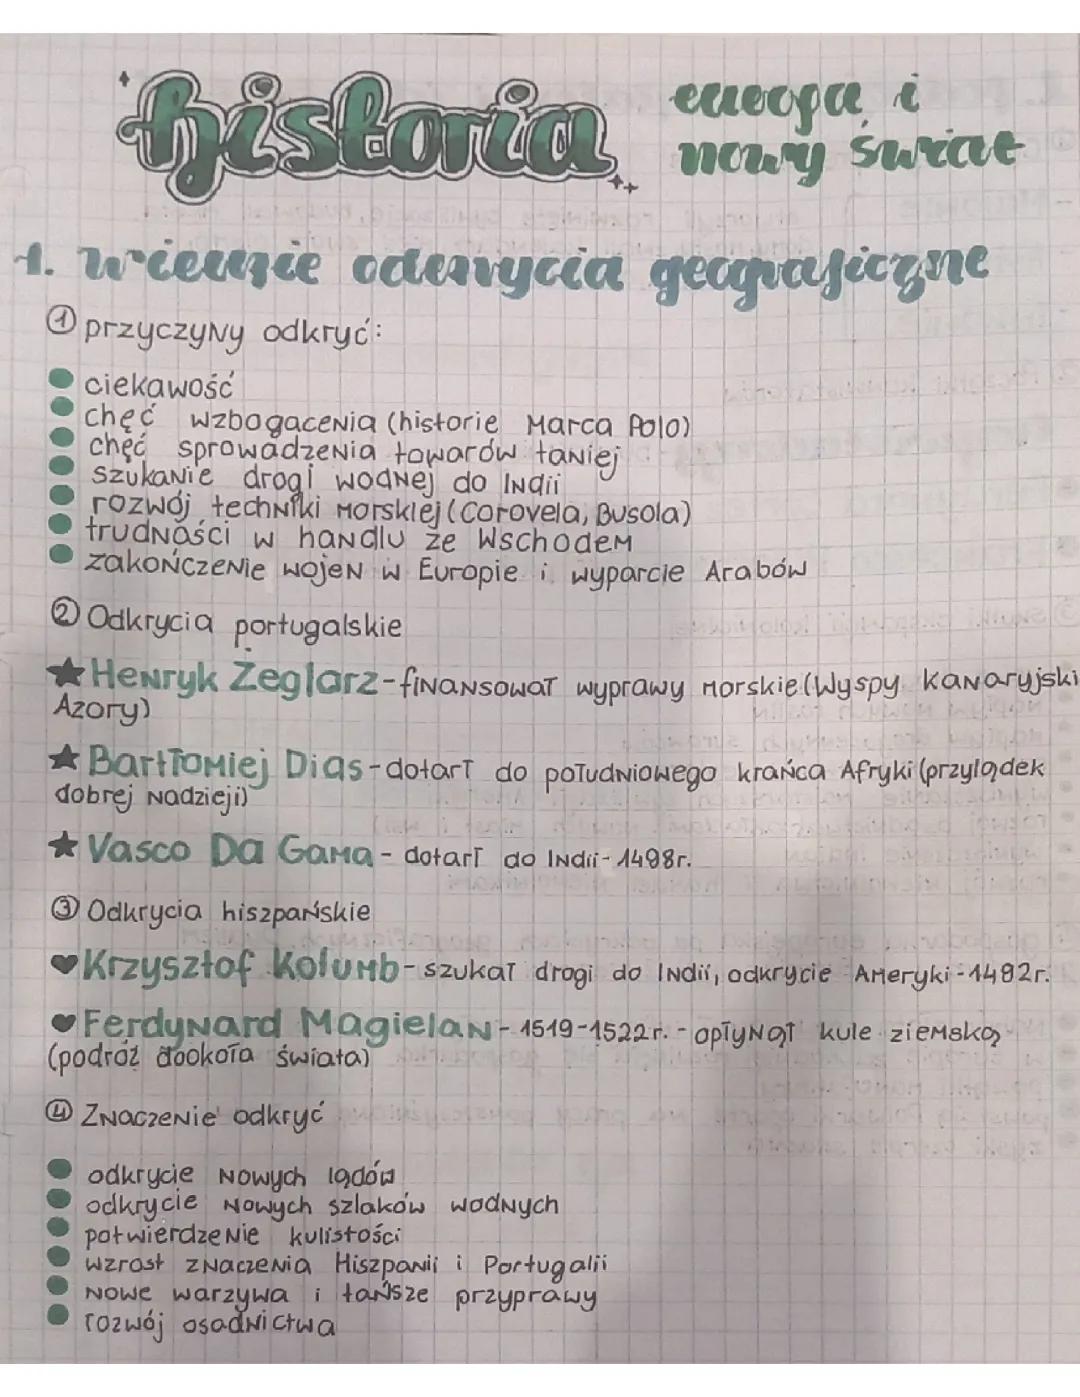 historia
europa i
nowy świat
1. wielkie odkrycia geograficzne
① przyczyny odkryć:
ciekawość
chęć wzbogacenia (historie Marca Polo)
chęć sprowadzenia towarów taniej
szukanie drogi wodnej do Indii
rozwój techniki morskiej (Corovela, Busola)
trudności w handlu ze Wschodem
zakończenie wojen w Europie i wyparcie Arabów
② Odkrycia portugalskie
Henryk Żeglarz - finansował wyprawy morskie (Wyspy Kanaryjski
Azory)
Barłtomiej Dias - dotarł do południowego krańca Afryki (przylądek
dobrej nadzieji)
Vasco Da Gama - dotarł do Indii - 1498r.
③ Odkrycia hiszpańskie
Krzysztof Kolumb - szukał drogi do Indii, odkrycie Ameryki - 1492r.
Ferdynard Magielan - 1519-1522r. - opłynął kule ziemską
(podróż dookoła świata)
④ Znaczenie odkryć
odkrycie nowych lądów
odkrycie nowych szlaków wodnych
potwierdzenie kulistości
wzrost znaczenia Hiszpanii i Portugalii
nowe warzywa i tańsze przyprawy
rozwój osadnictwa